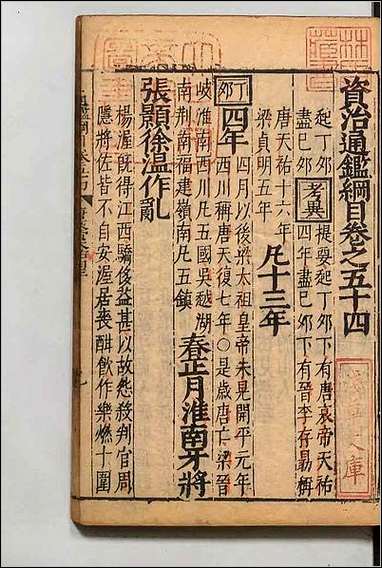 資治通鑑綱目卷之五十四
起丁夘
盡己夘
考異
提要起丁夘下有唐哀帝天祐
四年盡己夘下有晉李存勗稱
唐天祐十六年
梁貞明五年
凡十三年
丁夘
四年
四月以後梁太祖皇帝朱晃開平元年
西川稱唐天復七年○是歲唐亡梁晉
岐淮南西川凡五國吳越湖
南荆南福建嶺南凡五鎮
春正月淮南牙將
張顥徐溫作亂
楊渥既得江西驕侈益甚以故怨殺判官周
隱將佐皆不自安渥居喪酣飲作樂燃十圍